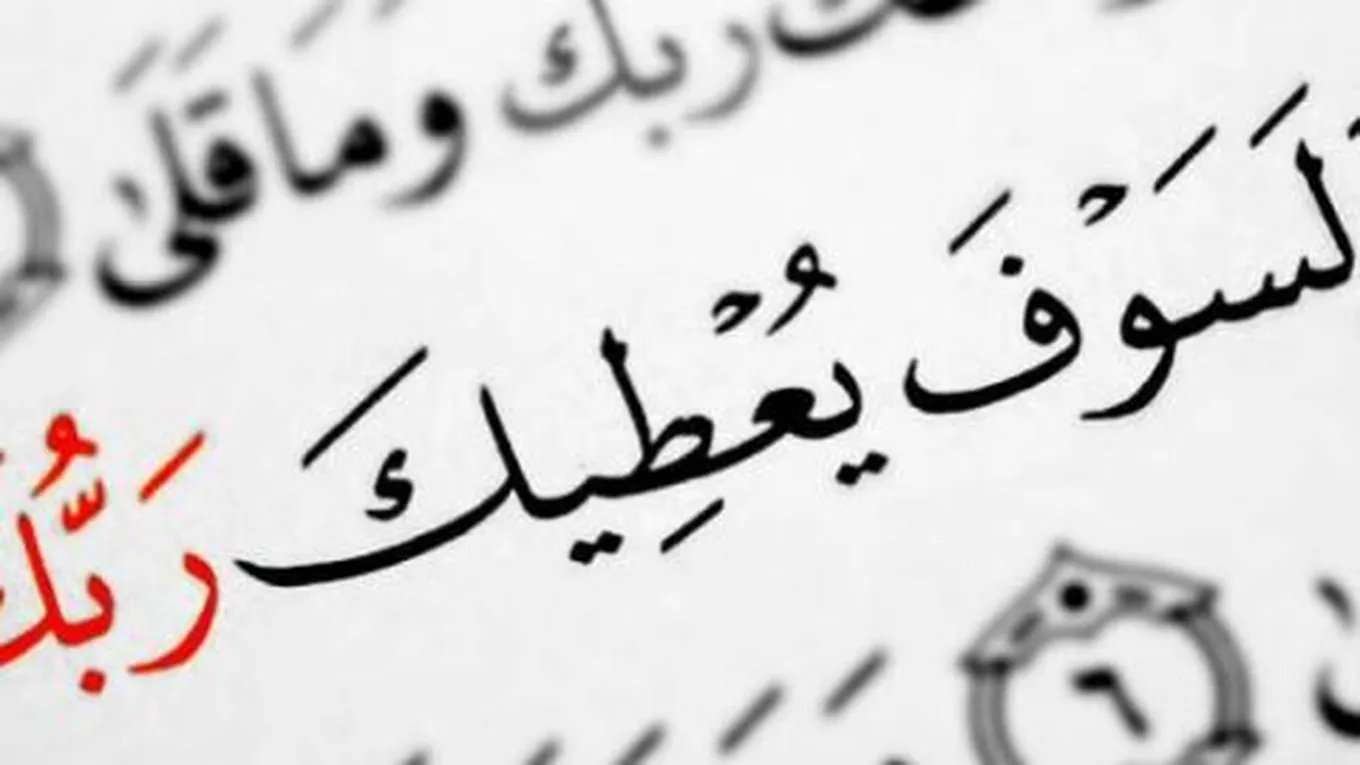 ربك وما قلى
لَسَوْفَ يُعْطِيكَ رَبُّكَ
٦